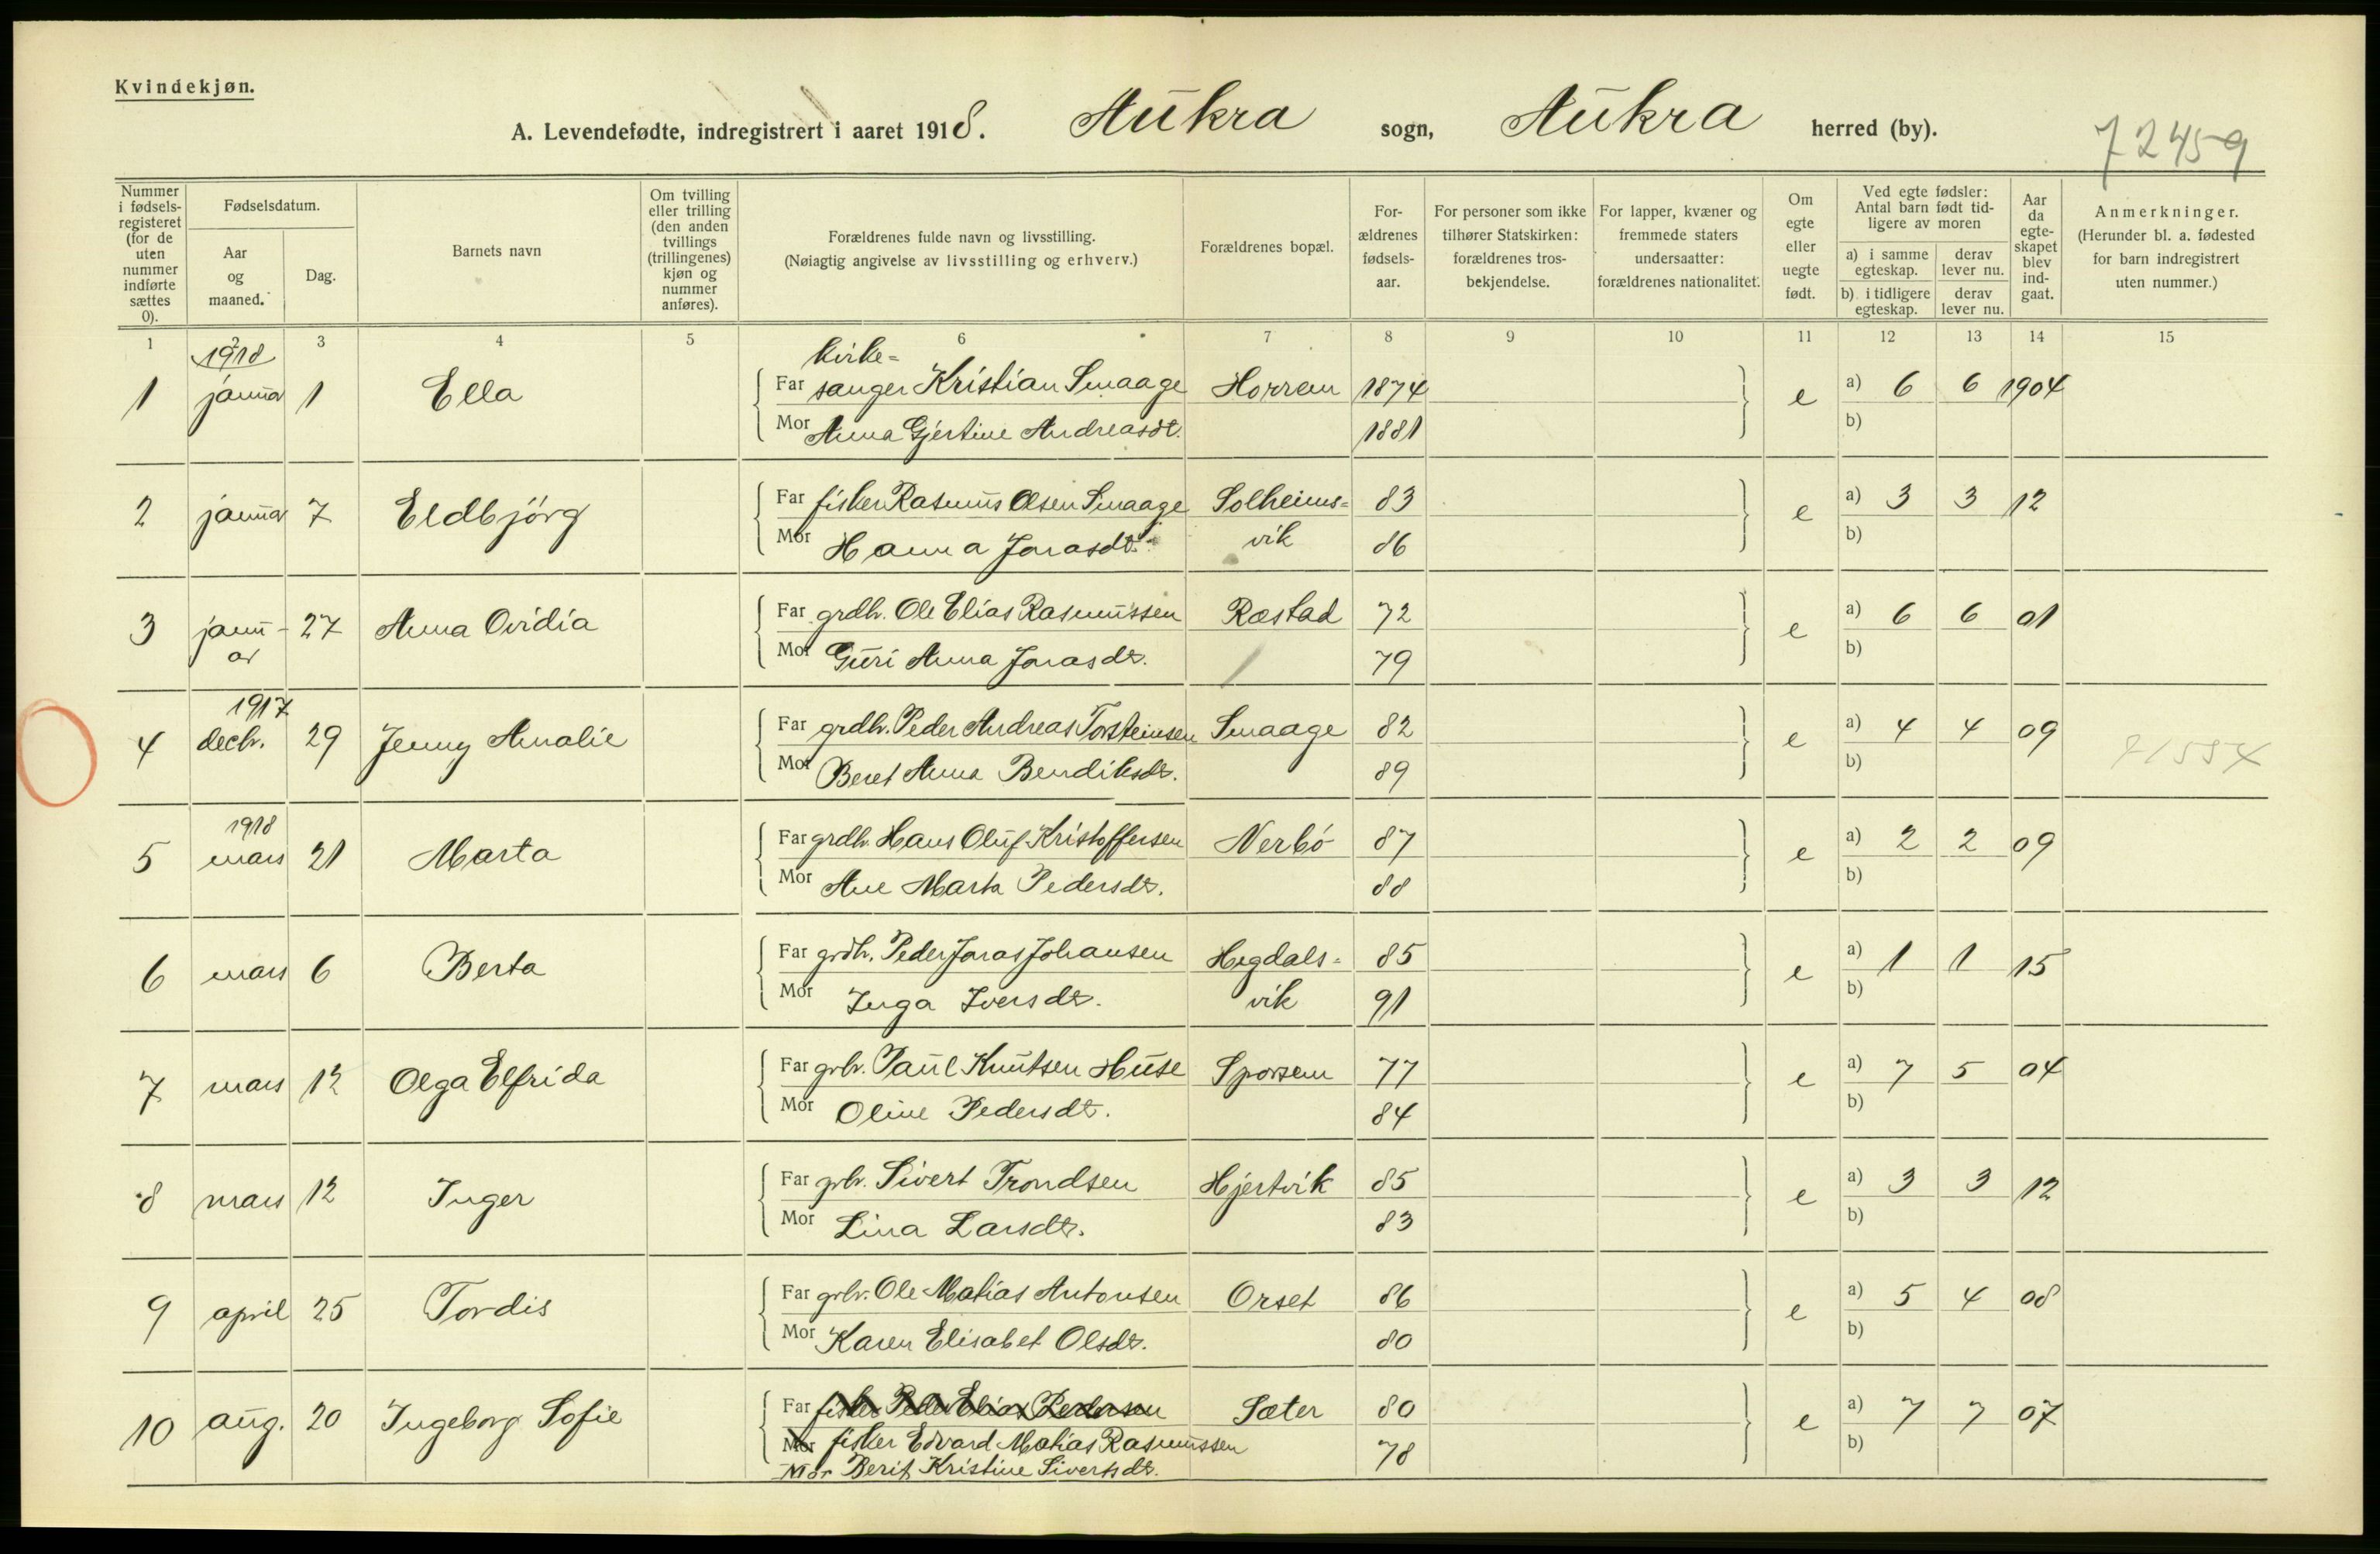 Kvindekjøn.
A. Levendefødte, indregistrert i aaret 1918. Aukra sogn, Aukra herred (by). 72459
Nummer i fødsels-registeret (for de uten nummer indførte sættes 0).
Fødselsdatum.
Aar og maaned.
Dag.
Barnets navn
Om tvilling eller trilling (den anden tvillings (trillingenes) kjøn og nummer anføres).
Forældrenes fulde navn og livsstilling.
(Nøiagtig angivelse av livsstilling og erhverv.)
Forældrenes bopæl.
For-ældrenes fødsels-aar.
For personer som ikke tilhører Statskirken: forældrenes tros-bekjendelse.
For lapper, kvæner og fremmede staters undersaatter: forældrenes nationalitet.
Om egte eller uegte født.
Ved egte fødsler: Antal barn født tid-ligere av moren
a) i samme egteskap.
derav lever nu.
b) i tidligere egteskap.
derav lever nu.
Aar da egte-skapet blev ind-gaat.
Anmerkninger.
(Herunder bl. a. fødested for barn indregistrert uten nummer.)
1 2 3 4 5 6 7 8 9 10 11 12 13 14 15
1918 kirke=
1 januar 1 Ella Far sanger Kristian Smaage Horrem 1874 e a) 6 6 1904
Mor Anna Gjertine Andreasdt. 1881 b)
2 januar 7 Eldbjörg Far fisker Rasmus Olsen Smaage Solheims= 83 e a) 3 3 12
Mor Hanna Jonasdt. vik 86 b)
3 janu- 27 Anna Ovidia Far grdbr. Ole Elias Rasmussen Røstad 72 e a) 6 6 01
ar Mor Guri Anna Jonasdt. 79 b)
1917
4 decbr. 29 Jenny Amalie Far grdbr. Peder Andreas Torsteinsen Smaage 82 e a) 4 4 09
Mor Beret Anna Bendiksdt. 89 b)
1918
5 mars 21 Marta Far grdbr. Hans Oluf Kristoffersen Nerbö 87 e a) 2 2 09
Mor Ane Marta Pedersdt. 88 b)
6 mars 6 Berta Far grdbr. Peder Jonas Johansen Hegdals= 85 e a) 1 1 15
Mor Inga Iversdt. vik 91 b)
7 mars 12 Olga Elfrida Far grbr. Paul Knutsen Huse Sporsem 77 e a) 7 5 04
Mor Oline Pedersdt. 84 b)
8 mars 12 Inger Far grbr. Sivert Trondsen Hjertvik 85 e a) 3 3 12
Mor Lina Larsdt. 83 b)
9 april 25 Tordis Far grbr. Ole Matias Antonsen Orset 86 e a) 5 4 08
Mor Karen Elisabet Olsdt. 80 b)
10 aug. 20 Ingeborg Sofie Far fisker Peder Elias Pedersen Sæter 80 e a) 7 7 07
Mor fisker Edvard Matias Rasmussen 78 b)
Mor Berit Kristine Sivertsdt.